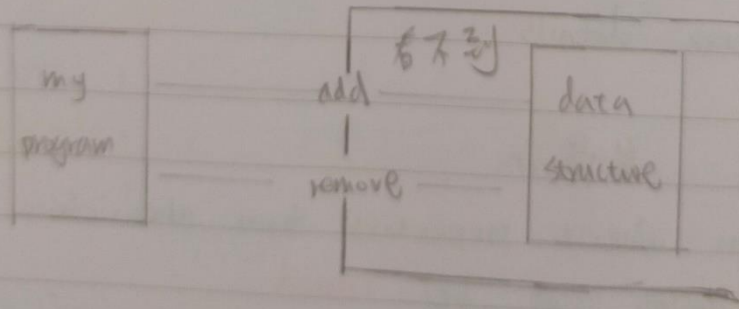 看不到
my
program
add
remove
data
structure